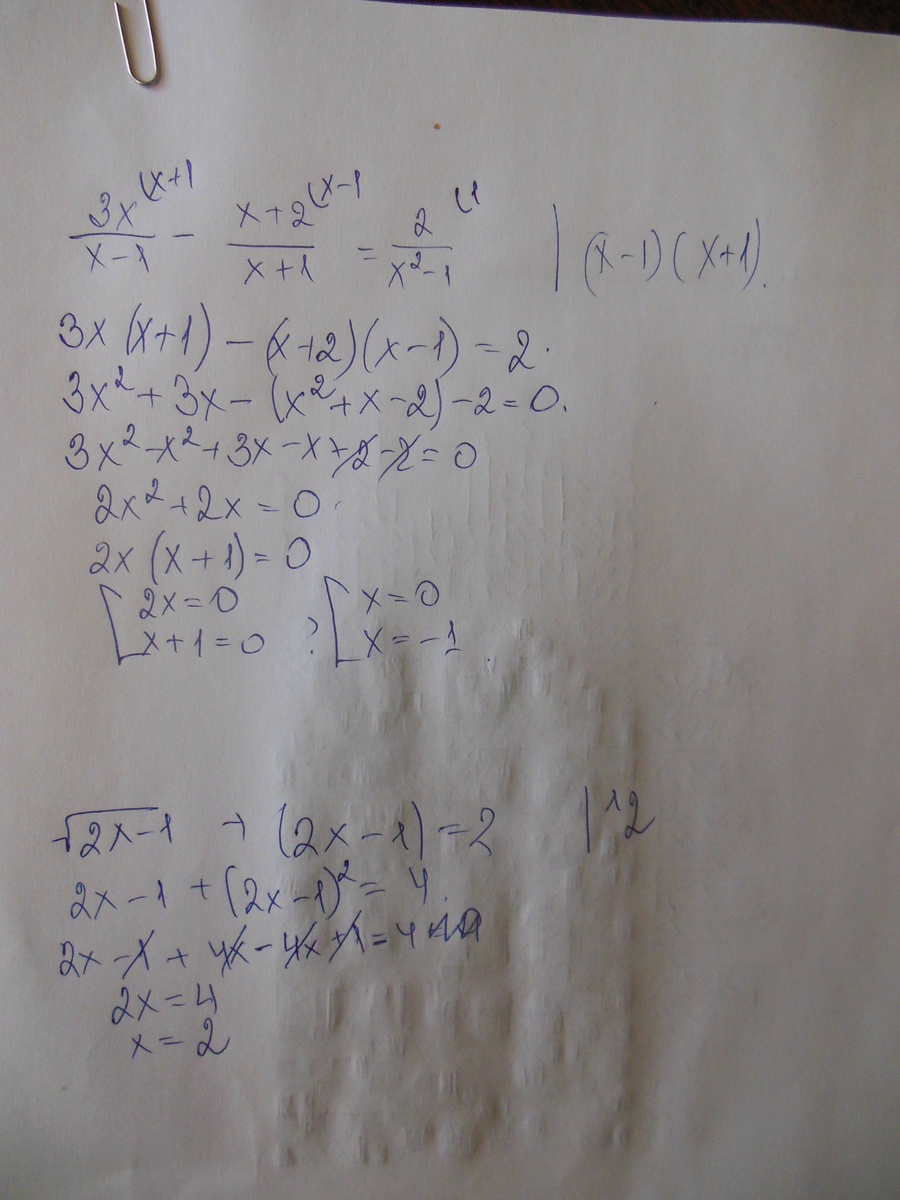 3x (x+1 / x-1 - x+2 (x-1 / x+1 = 2 (1 / x²-1 | (x-1)(x+1).
3x(x+1) - (x+2)(x-1) = 2.
3x² + 3x - (x² + x - 2) - 2 = 0.
3x² - x² + 3x - x + 2 - 2 = 0
2x² + 2x = 0
2x(x+1) = 0
[2x = 0 ; [x = 0
[x+1 = 0 ; [x = -1
√2x-1 + (2x-1) = 2 | ^2
2x-1 + (2x-1)² = 4
2x - 1 + 4x - 4x + 1 = 4
2x = 4
x = 2